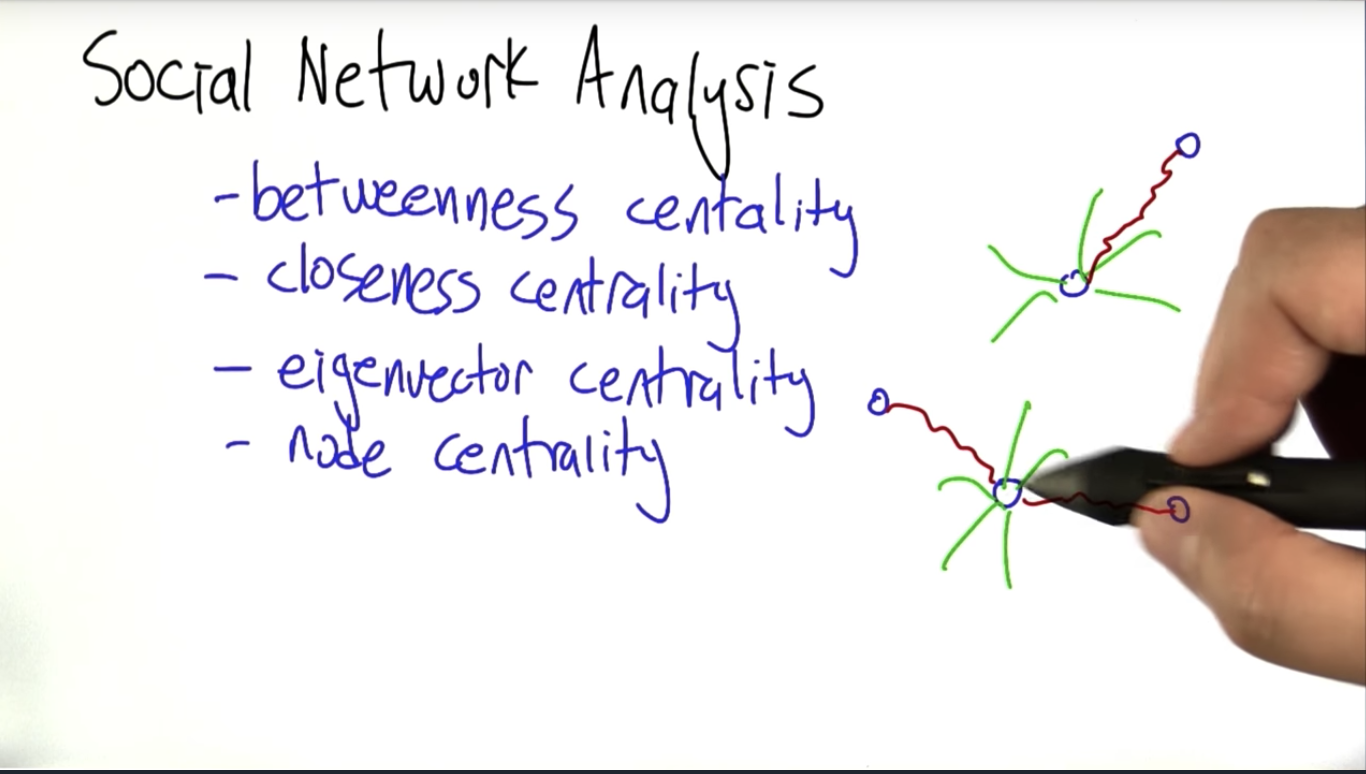 Social Network Analysis
- betweenness centality
- closeness centrality
- eigenvector centrality
- node centrality